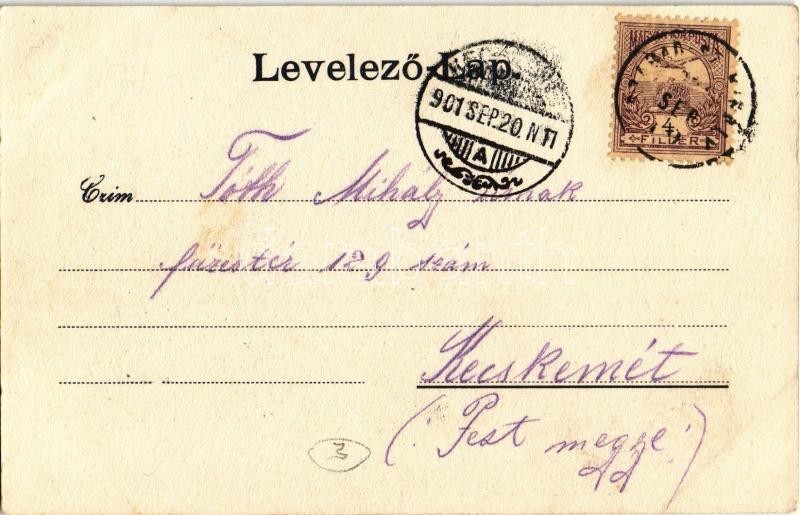 MAGYAR KIR. POSTA
Levelező-Lap.
901 SEP. 20. N 11
A
SEP
4
FILLER
Czim Tóth Mihály úrnak
füzestér 129 szám
Kecskemét
(: Pest megye :)
3